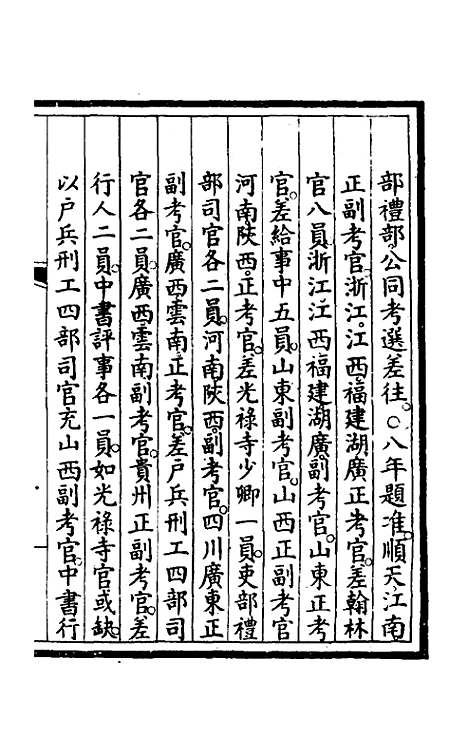 部禮部公同考選差往。○八年題准。順天江南
正副考官浙江。江西福建湖廣正考官。差翰林
官八員浙江江西福建湖廣副考官。山東正考
官。差給事中五員。山東副考官。山西正副考官
河南陝西。正考官。差光祿寺少卿一員。吏部禮
部司官各二員。河南陝西。副考官。四川廣東正
副考官。廣西雲南正考官。差戶兵刑工四部司
官各二員。廣西雲南副考官。貴州正副考官。差
行人二員。中書評事各一員。如光祿寺官或缺。
以戶兵刑工四部司官充山西副考官。中書行